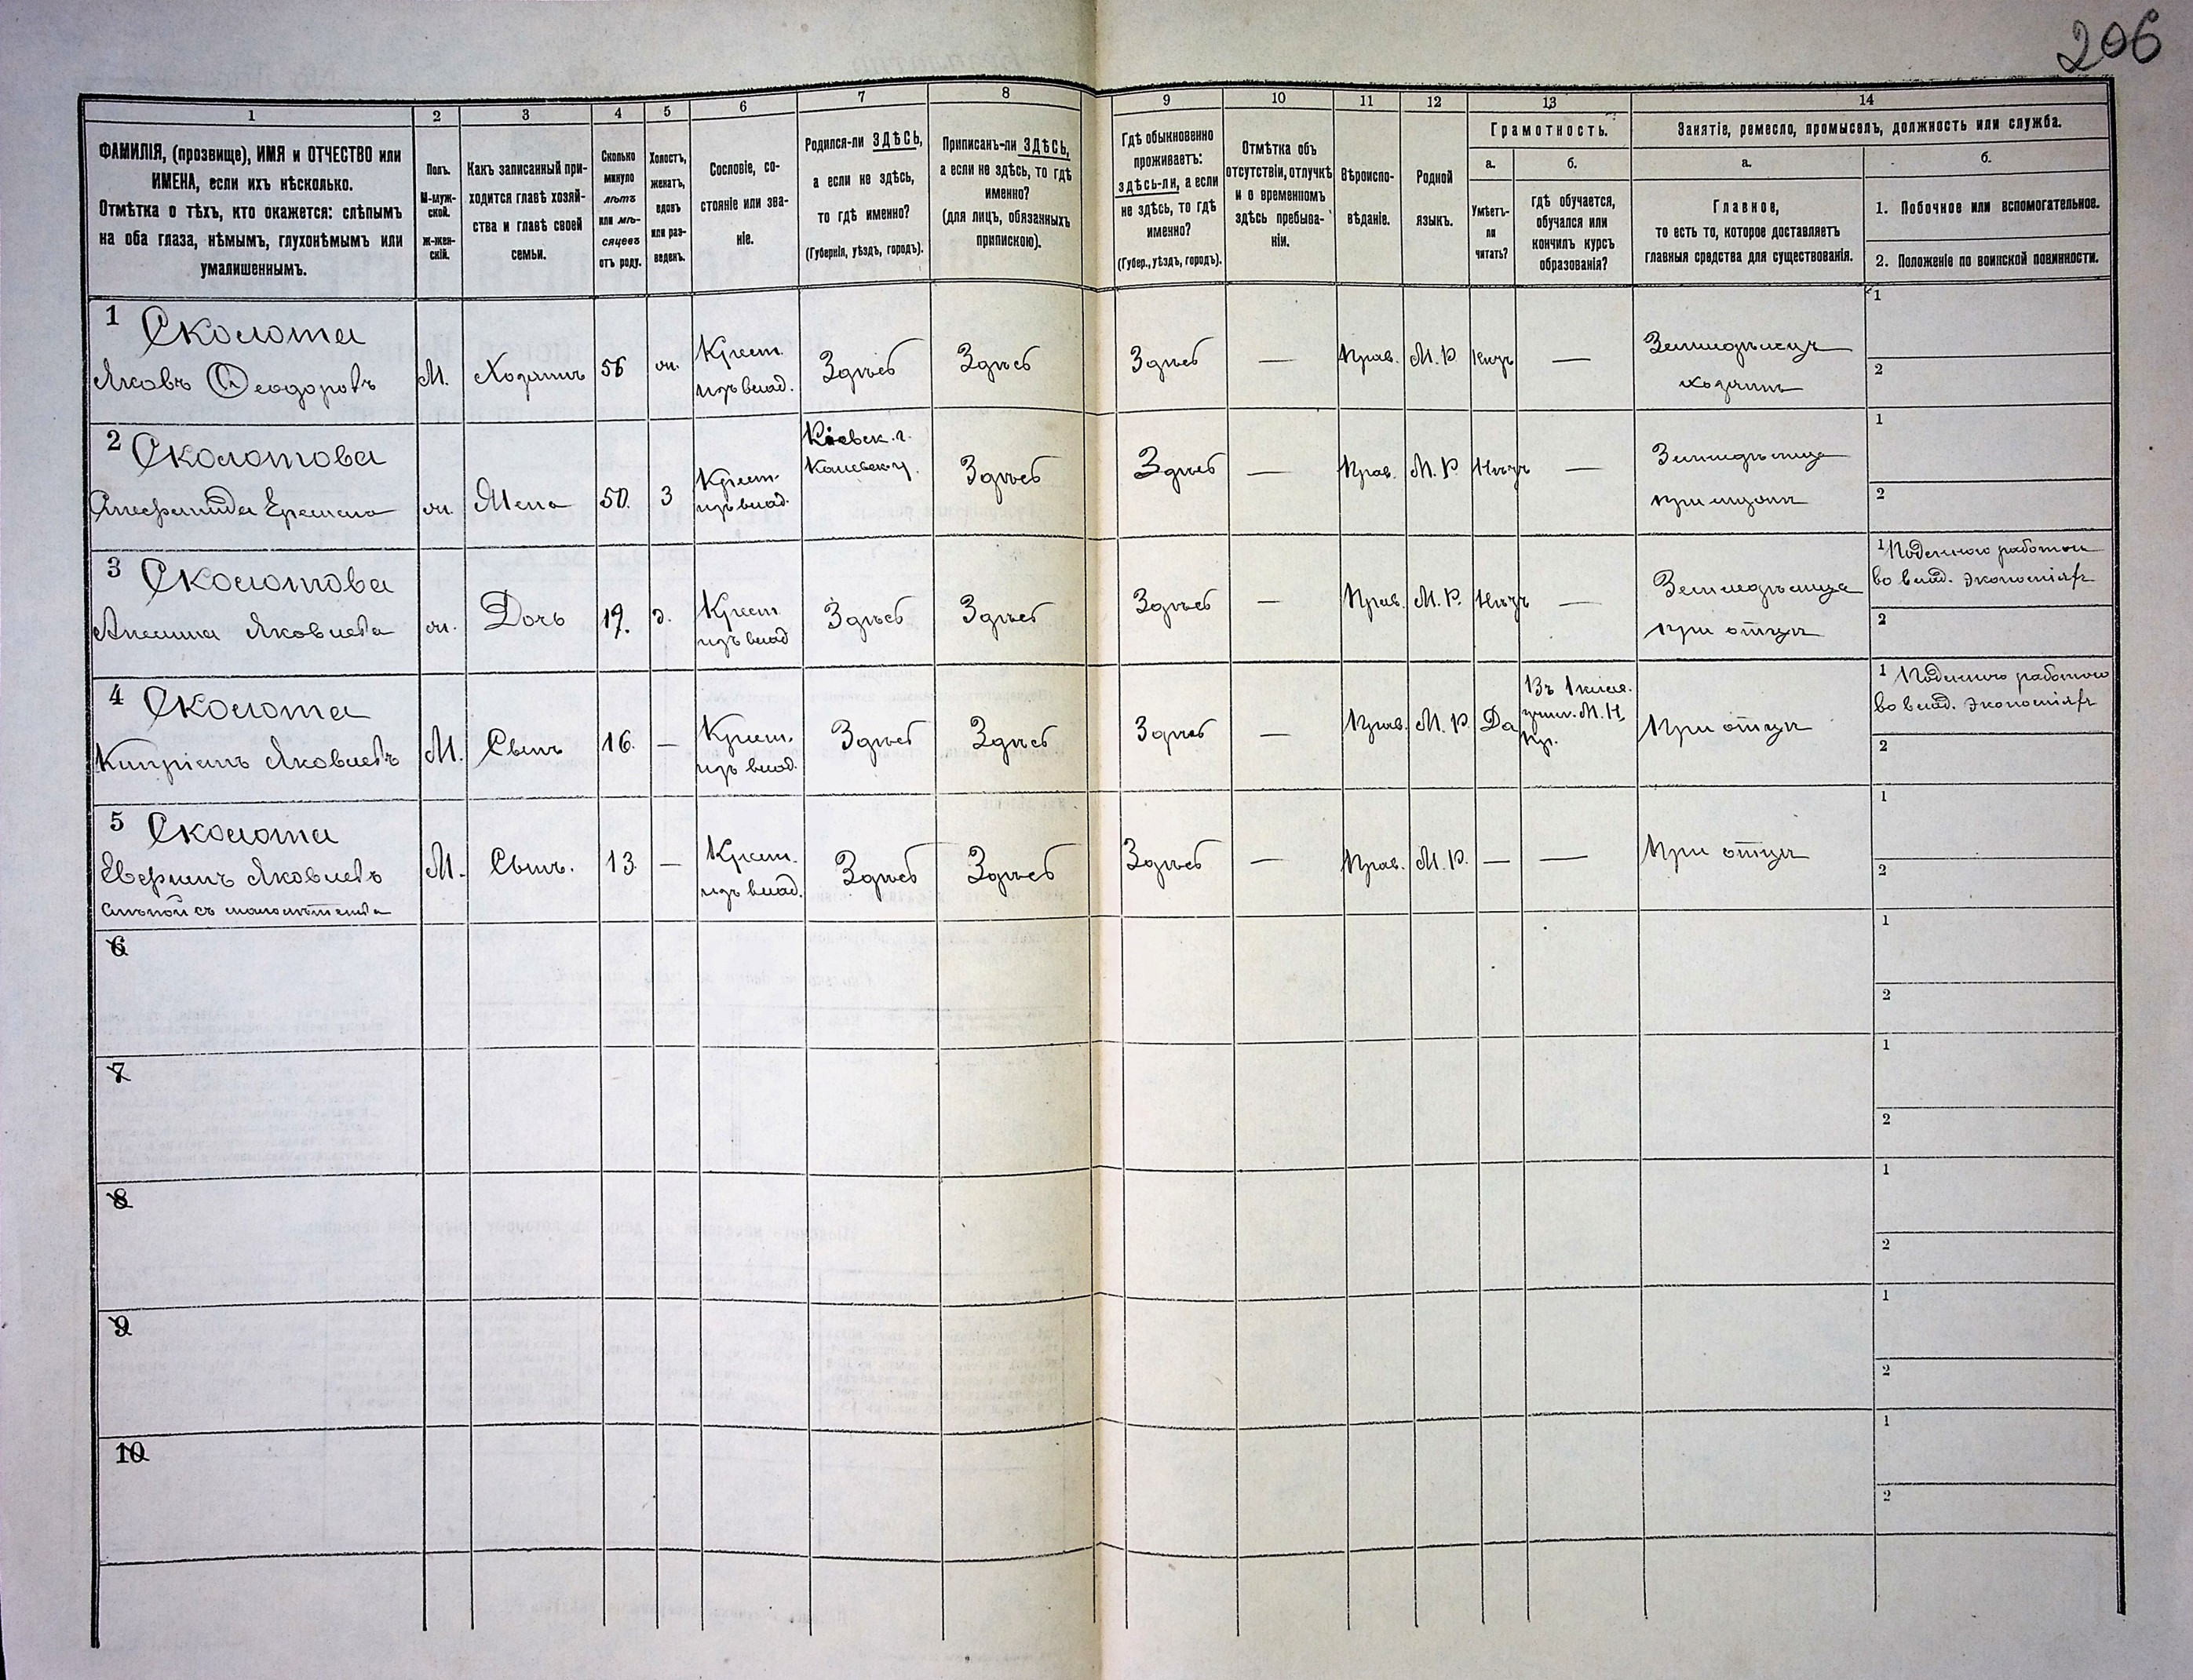 206
1
2
3
4
5
6
7
8
9
10
11
12
13
14
ФАМИЛІЯ, (прозвище), ИМЯ и ОТЧЕСТВО или
ИМЕНА, если ихъ нѣсколько.
Отмѣтка о тѣхъ, кто окажется: слѣпымъ
на оба глаза, нѣмымъ, глухонѣмымъ или
умалишеннымъ.
Полъ.
М-муж-
ской.
Ж-жен-
скій.
Какъ записанный при-
ходится главѣ хозяй-
ства и главѣ своей
семьи.
Сколько
минуло
лѣтъ
или мѣ-
сяцевъ
отъ роду.
Холостъ,
женатъ,
вдовъ
или раз-
веденъ.
Сословіе, со-
стояніе или зва-
ніе.
Родился-ли ЗДѢСЬ,
а если не здѣсь,
то гдѣ именно?
(Губернія, уѣздъ, городъ).
Приписанъ-ли ЗДѢСЬ,
а если не здѣсь, то гдѣ
именно?
(для лицъ, обязанныхъ
припискою).
Гдѣ обыкновенно
проживаетъ:
здѣсь-ли, а если
не здѣсь, то гдѣ
именно?
(Губер., уѣздъ, городъ).
Отмѣтка объ
отсутствіи, отлучкѣ
и о временномъ
здѣсь пребыва-
ніи.
Вѣроиспо-
вѣданіе.
Родной
языкъ.
Грамотность.
а.
Умѣетъ-
ли
читать?
б.
гдѣ обучается,
обучался или
кончилъ курсъ
образованія?
Занятіе, ремесло, промыселъ, должность или служба.
а.
Главное,
то есть то, которое доставляетъ
главныя средства для существованія.
б.
1. Побочное или вспомогательное.
2. Положеніе по воинской повинности.
1 Сколота
Яковъ Ѳеодоровъ
М.
Хозяинъ
56
ж.
Крест.
изъ влад.
Здѣсь
Здѣсь
Здѣсь
—
Прав.
М. Р.
Нѣтъ
—
Земледѣлецъ
хозяинъ
1
2
2 Сколотова
Ереміева
ж.
Жена
50.
З
Крест.
изъ влад.
Кіевск. г.
Каневск. у.
Здѣсь
Здѣсь
—
Прав.
М. Р.
Нѣтъ
—
Земледѣлица
при мужѣ
1
2
3 Сколотова
Яковлева
ж.
Дочь
19.
д.
Крест.
изъ влад
Здѣсь
Здѣсь
Здѣсь
—
Прав.
М. Р.
Нѣтъ
—
Земледѣлица
при отцѣ
1 Поденною работою
во влад. экономіяхъ
2
4 Сколота
Кипріанъ Яковлевъ
М.
Сынъ
16.
—
Крест.
изъ влад.
Здѣсь
Здѣсь
Здѣсь
—
Прав.
М. Р.
Да
Въ 1 клас.
учил. М. Н.
Пр.
При отцѣ
1 Поденною работою
во влад. экономіяхъ
2
5 Сколота
Яковлевъ
слѣпой съ малолѣтства
М.
Сынъ.
13.
—
Крест.
изъ влад.
Здѣсь
Здѣсь
Здѣсь
—
Прав.
М. Р.
—
—
При отцѣ
1
2
6
1
2
7
1
2
8
1
2
9
1
2
10
1
2